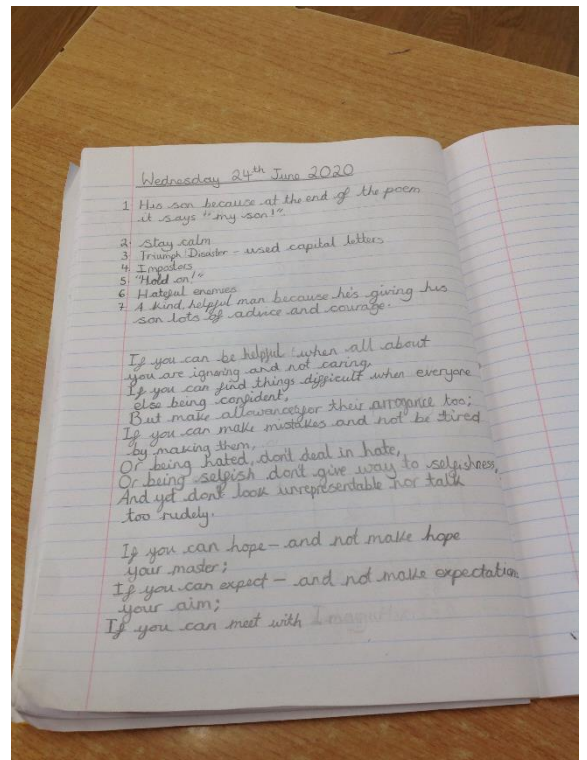 Wednesday 24th June 2020
1 His son because at the end of the poem
it says "my son!"
2 stay calm
3 Triumph Disaster - used capital letters
4 Impostors
5 "Hold on!"
6 Hateful enemies
7 A kind, helpful man because he's giving his
son lots of advice and courage.
If you can be helpful when all about
you are ignoring and not caring,
If you can find things difficult when everyone
else being confident,
But make allowances for their arrogance too;
If you can make mistakes and not be tired
by making them,
Or being hated, don't deal in hate,
Or being selfish don't give way to selfishness,
And yet don't look unrepresendable nor talk
too rudely.
If you can hope – and not make hope
your master;
If you can expect – and not make expectation
your aim;
If you can meet with